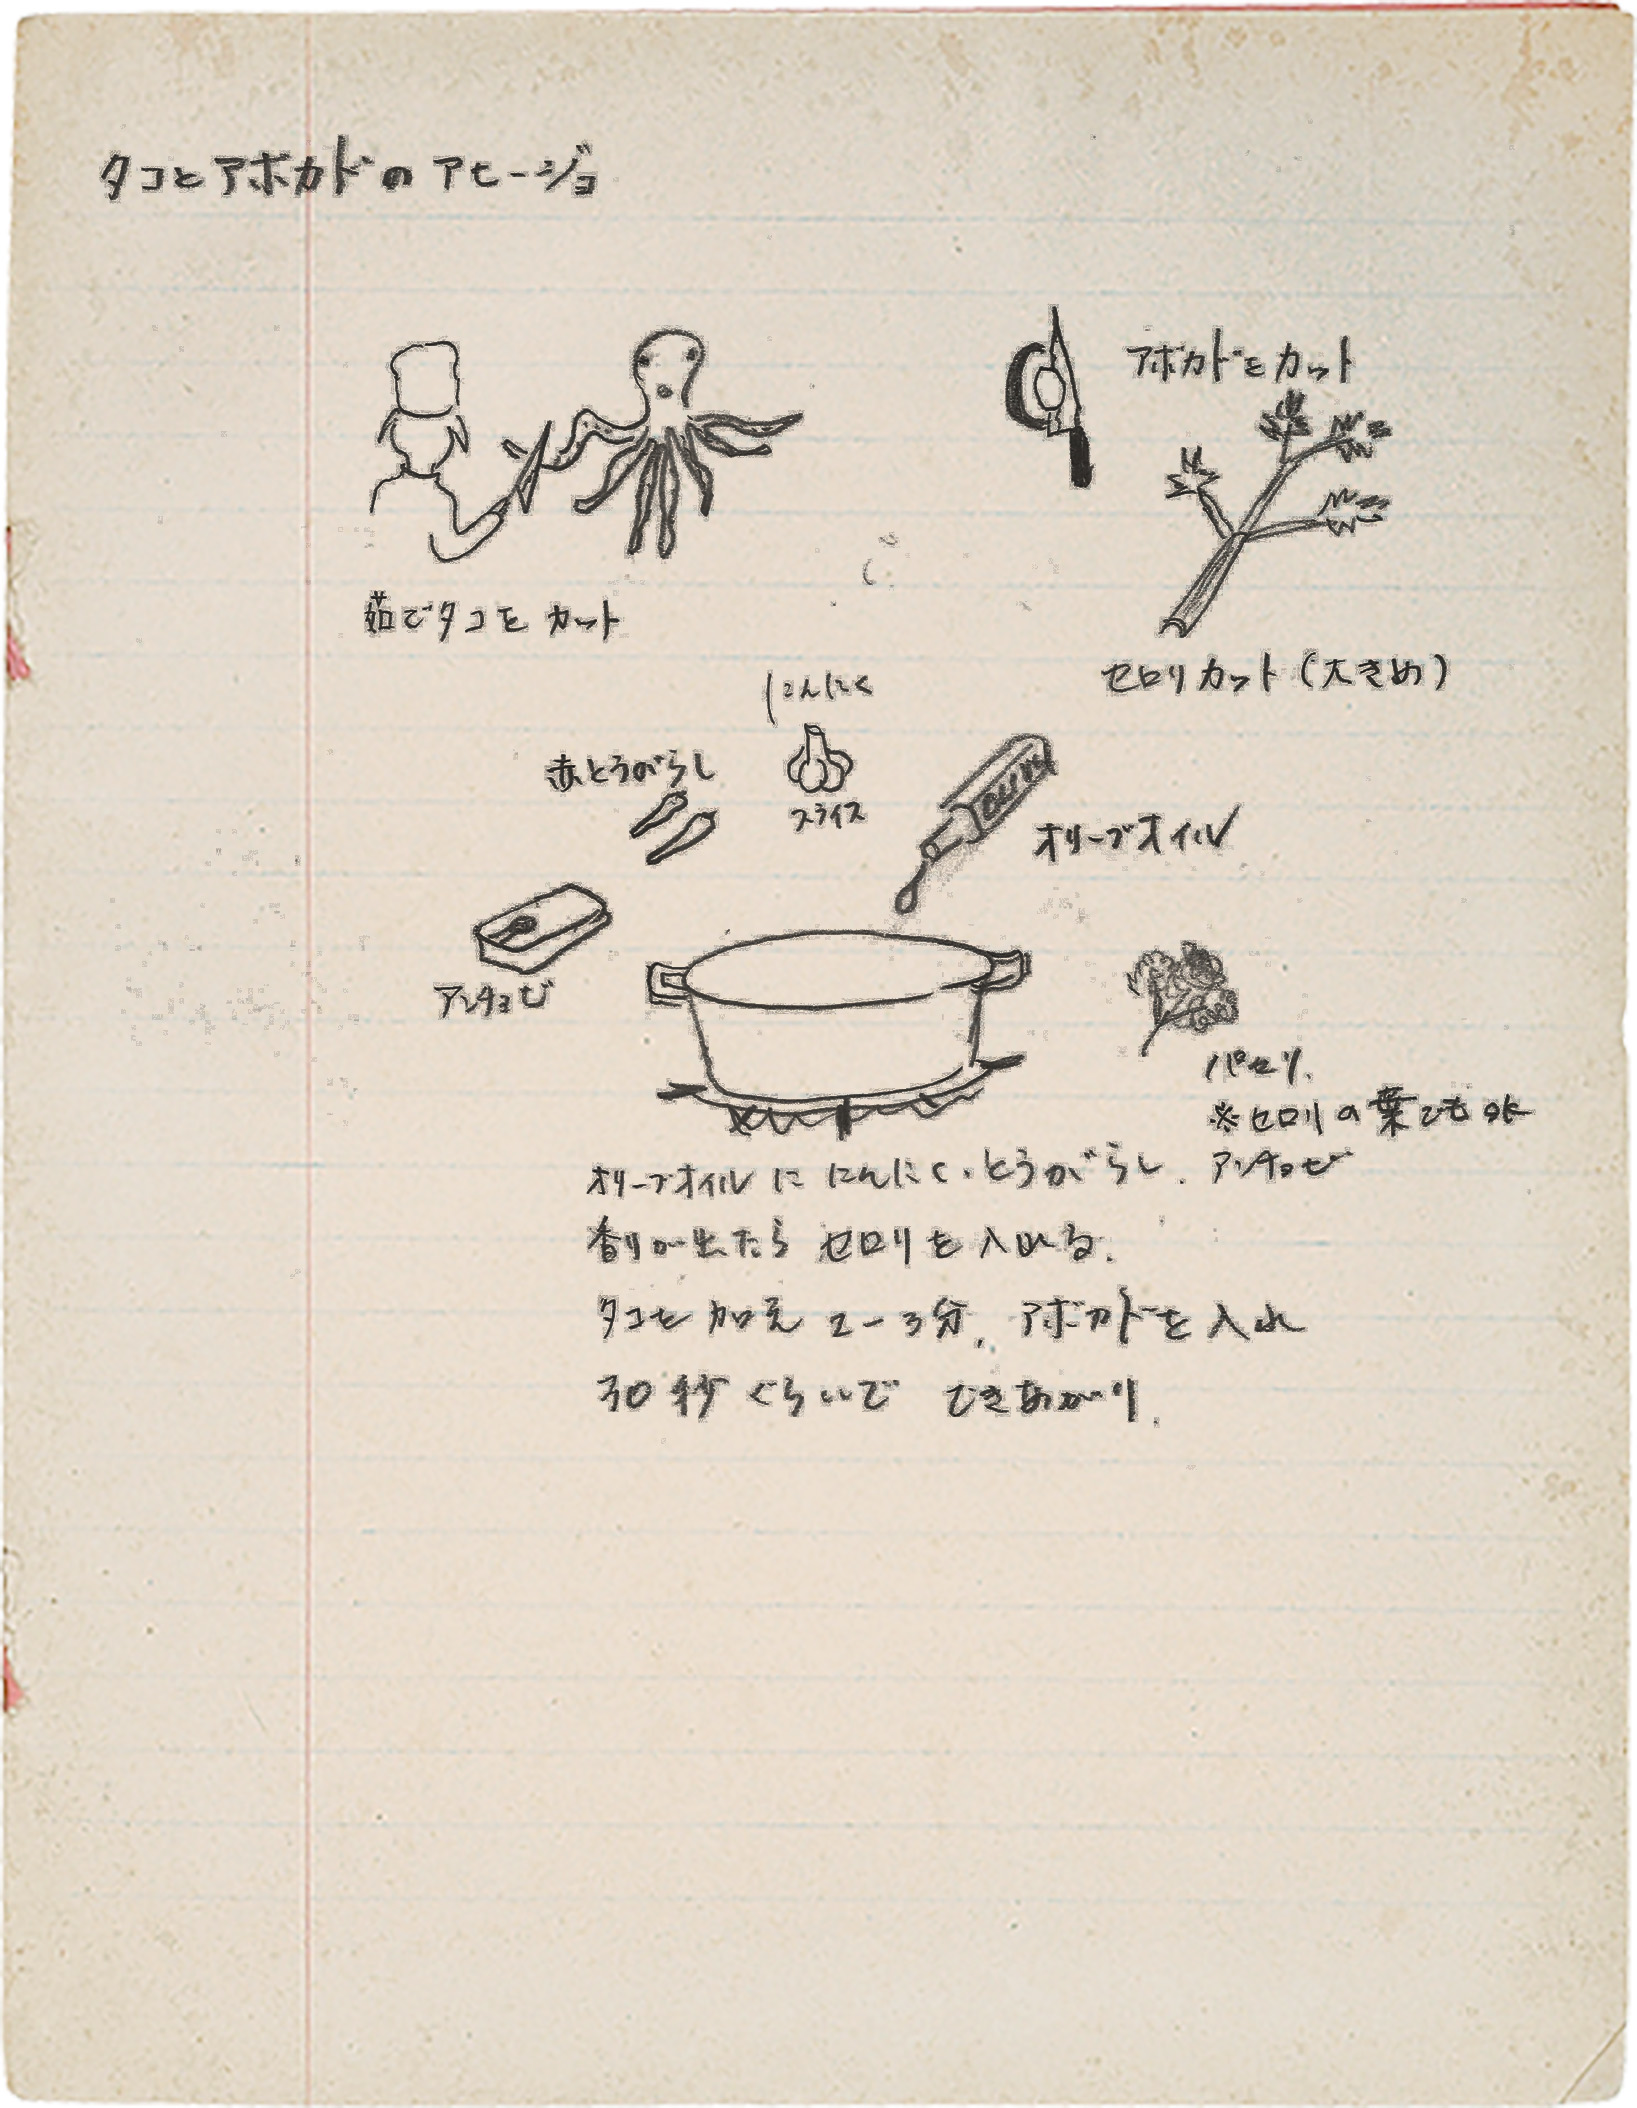 タコとアボカドのアヒージョ
アボカドをカット
茹でタコを カット
セロリ カット (大きめ)
にんにく
赤とうがらし
スライス
OLIVE
オリーブオイル
アンチョビ
パセリ.
※セロリの葉でもOK
オリーブオイル に にんにく・とうがらし. アンチョビ
香りが出たら セロリを入れる.
タコを 加え 2-3分. アボカドを 入れ
30秒 ぐらいで できあがり.